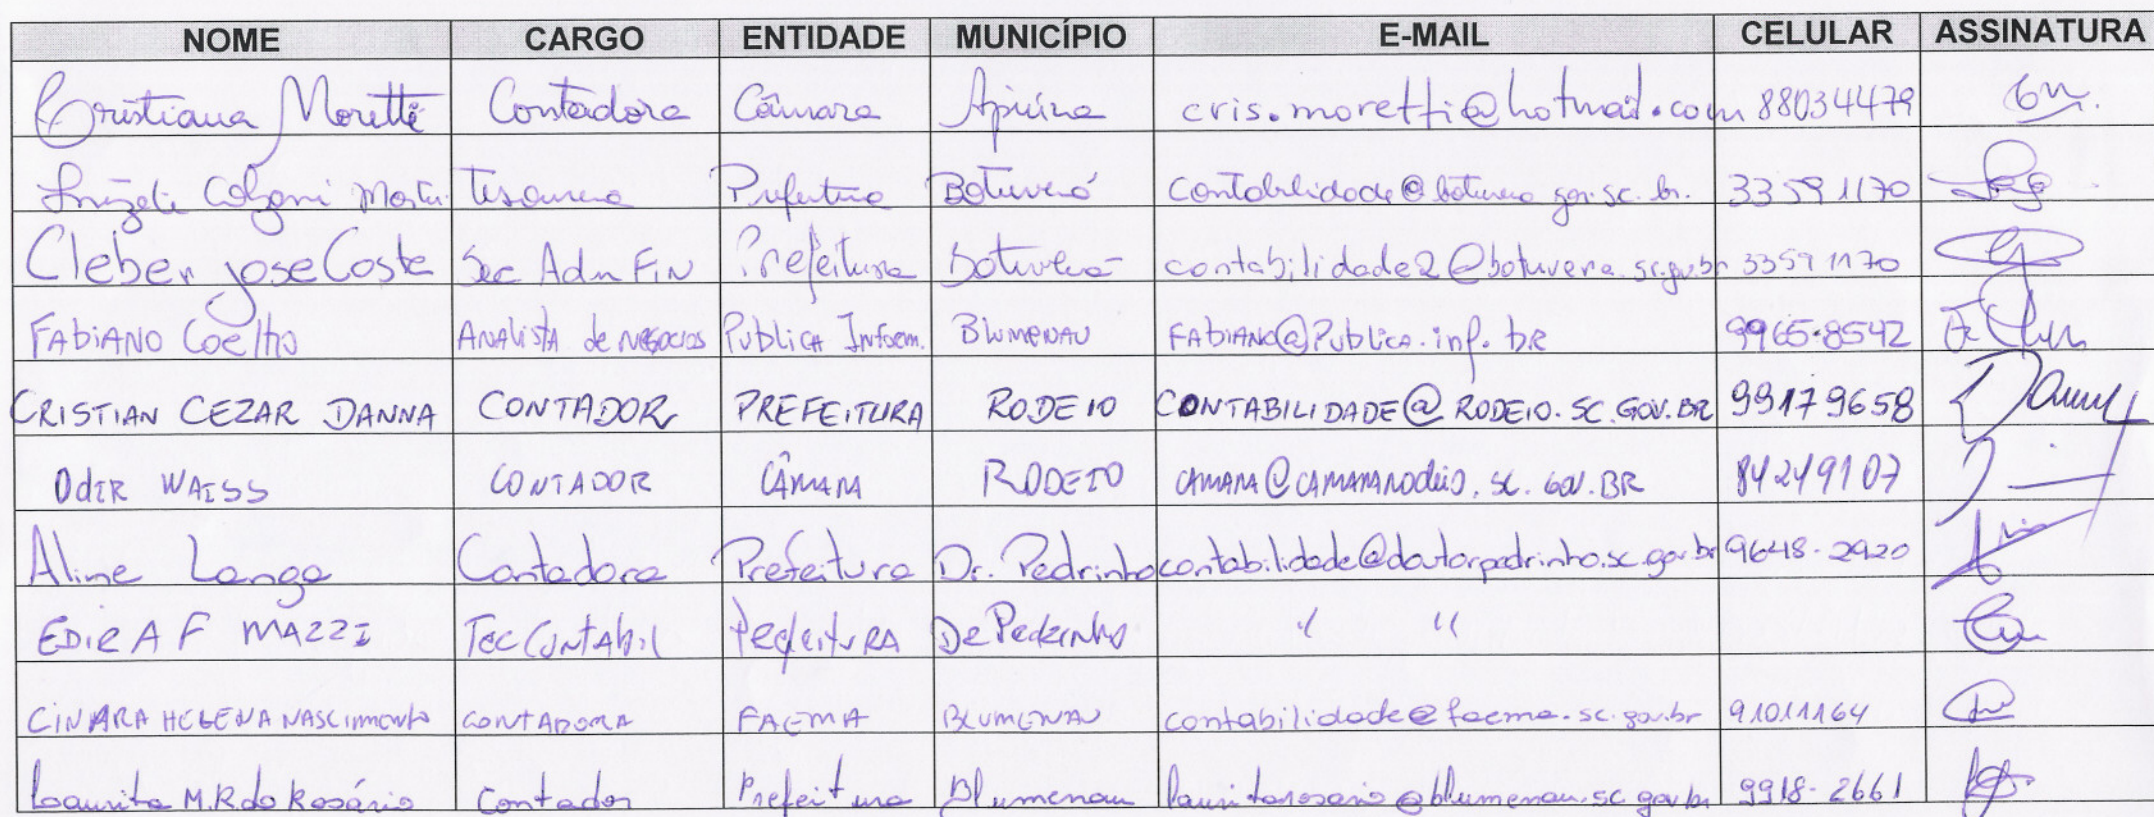 NOME CARGO ENTIDADE MUNICÍPIO E-MAIL CELULAR ASSINATURA
Cristiana Moretti Contadora Câmara Apiúna cris.moretti@hotmail.com 88034479
Tesoureira Prefeitura Botuverá contabilidade@botuvera.gov.sc.br. 33591170
Cleber jose Costa Sec Adm FIN Prefeitura Botuverá contabilidade2@botuvera.sc.gov.br 33591170
FABIANO Coelho ANAlistA de NEGOCIOS PUBLICA Inform. BLUMENAU FABIANO@Publica.inf.bR 9965-8542
CRISTIAN CEZAR DANNA CONTADOR PREFEITURA RODEIO CONTABILIDADE@RODEIO.SC.GOV.BR 99179658
ODIR WAISS CONTADOR CÂMARA RODEIO CAMARA@CAMARARODEIO.SC.GOV.BR 84249107
Aline Lenga Contadora Prefeitura Dr. Pedrinho contabilidade@doutorpedrinho.sc.gov.br 9648-2920
EDIR A F MAZZI Tec Contabil PREfeituRA DR PedRinho " "
CINARA HELENA NASCIMENTO CONTADORA FAEMA BLUMENAU contabilidade@faema.sc.gov.br 91011164
Laurita M.R. do Rosário Contador Prefeitura Blumenau lauritarosario@blumenau.sc.gov.br 9918-2661